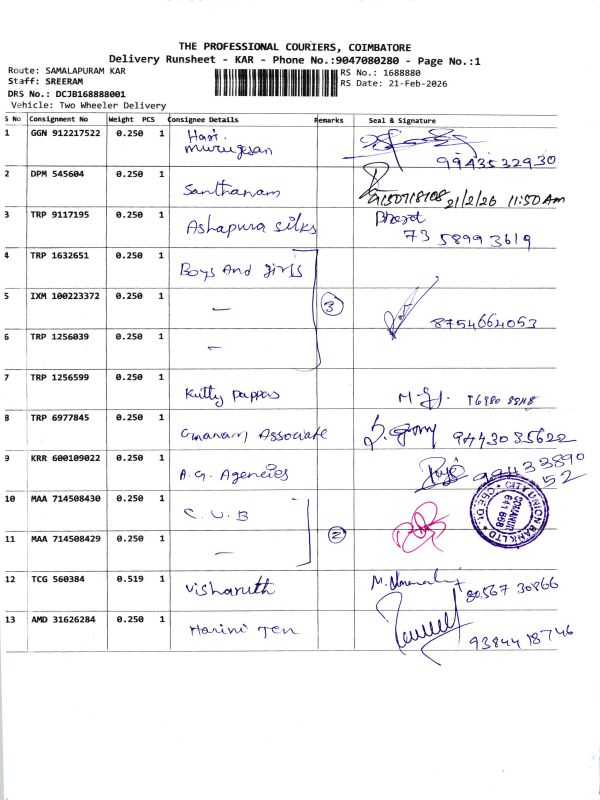 THE PROFESSIONAL COURIERS, COIMBATORE
Delivery Runsheet - KAR - Phone No.:9047080280 - Page No.:1
Route: SAMALAPURAM KAR
Staff: SREERAM
DRS No.: DCJB168888001
Vehicle: Two Wheeler Delivery
RS No.: 1688880
RS Date: 21-Feb-2026
S No Consignment No Weight PCS Consignee Details Remarks Seal & Signature
1 GGN 912217522 0.250 1 Hari. Murugesan 9943532930
2 DPM 545604 0.250 1 Santhanam 9150718108 21/2/26 11:50 Am
3 TRP 9117195 0.250 1 Ashapura silks Bharat 73 5899 3619
4 TRP 1632651 0.250 1 Boys And girls
5 IXM 100223372 0.250 1 — 3 8754664053
6 TRP 1256039 0.250 1 —
7 TRP 1256599 0.250 1 Kutty pappas
8 TRP 6977845 0.250 1 Gnanam Associate 9443035622
9 KRR 600109022 0.250 1 A.G. Agencies 99433890 52
10 MAA 714508430 0.250 1 C.U.B
11 MAA 714508429 0.250 1 — 2
CITY UNION BANK LTD
641 658
12 TCG 560384 0.519 1 Visharuth 80567 30866
13 AMD 31626284 0.250 1 Harini Tex 9384418746